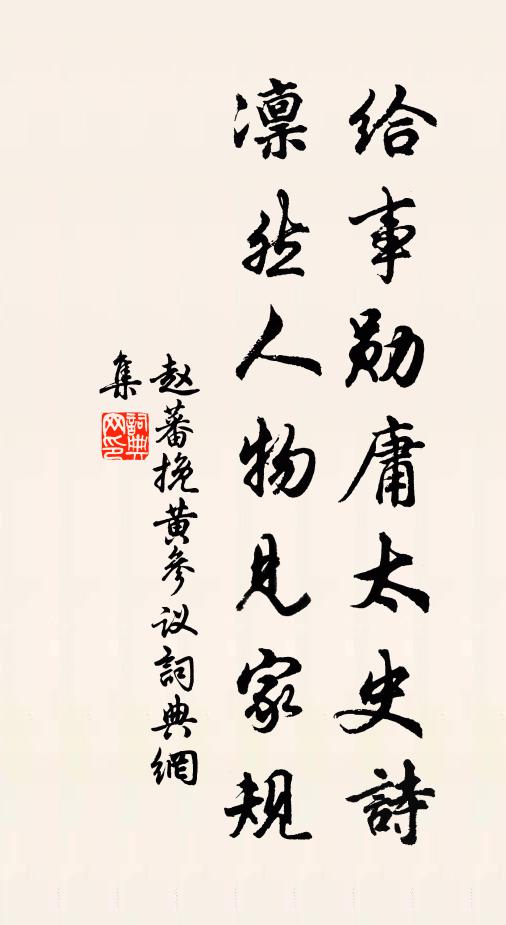 给事勋庸太史詩
凛然人物見家規
赵蕃挽黄參议詞典網
集
詞典網印